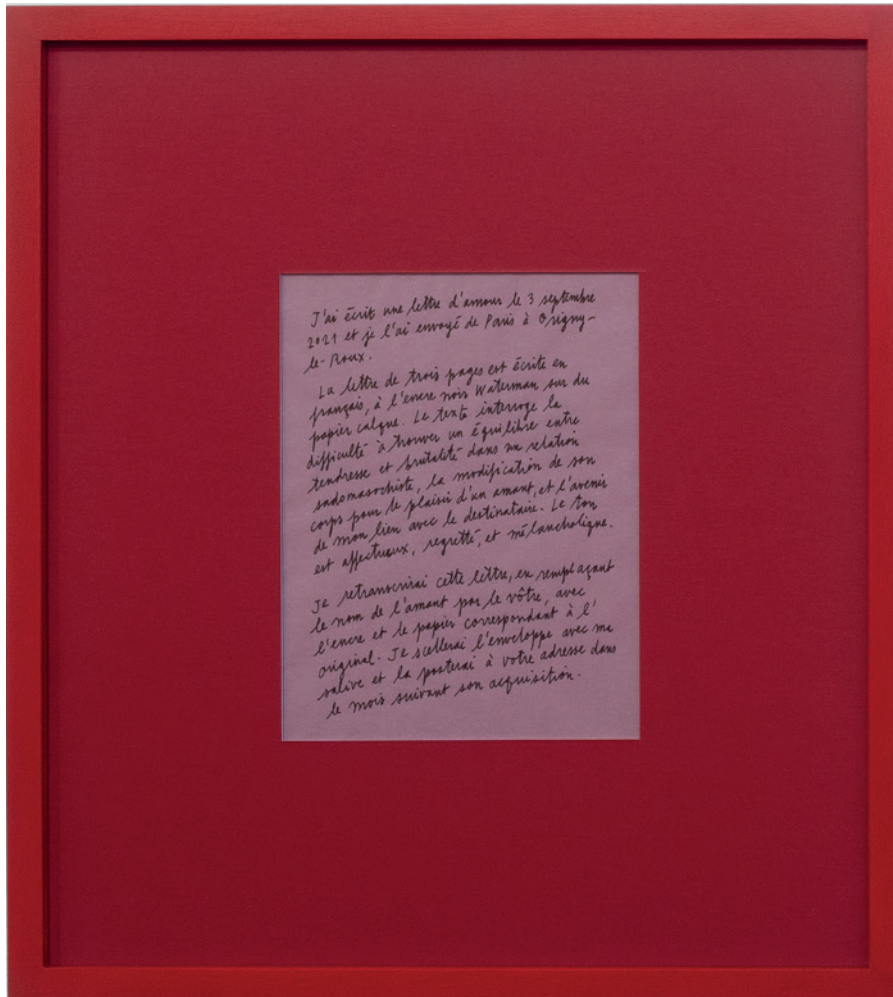 J'ai écrit une lettre d'amour le 3 septembre
2021 et je l'ai envoyé de Paris à Origny-
le-Roux.
La lettre de trois pages est écrite en
français, à l'encre noir Waterman sur du
papier calque. Le texte interroge la
difficulté à trouver un équilibre entre
tendresse et brutalité dans ma relation
sadomasochiste, la modification de son
corps pour le plaisir d'un amant, et l'avenir
de mon lien avec le destinataire. Le ton
est affectueux, regretté, et mélancholique.
Je retranscrirai cette lettre, en remplaçant
le nom de l'amant par le vôtre, avec
l'encre et le papier correspondant à l'
original. Je scellerai l'enveloppe avec ma
salive et la posterai à votre adresse dans
le mois suivant son acquisition.